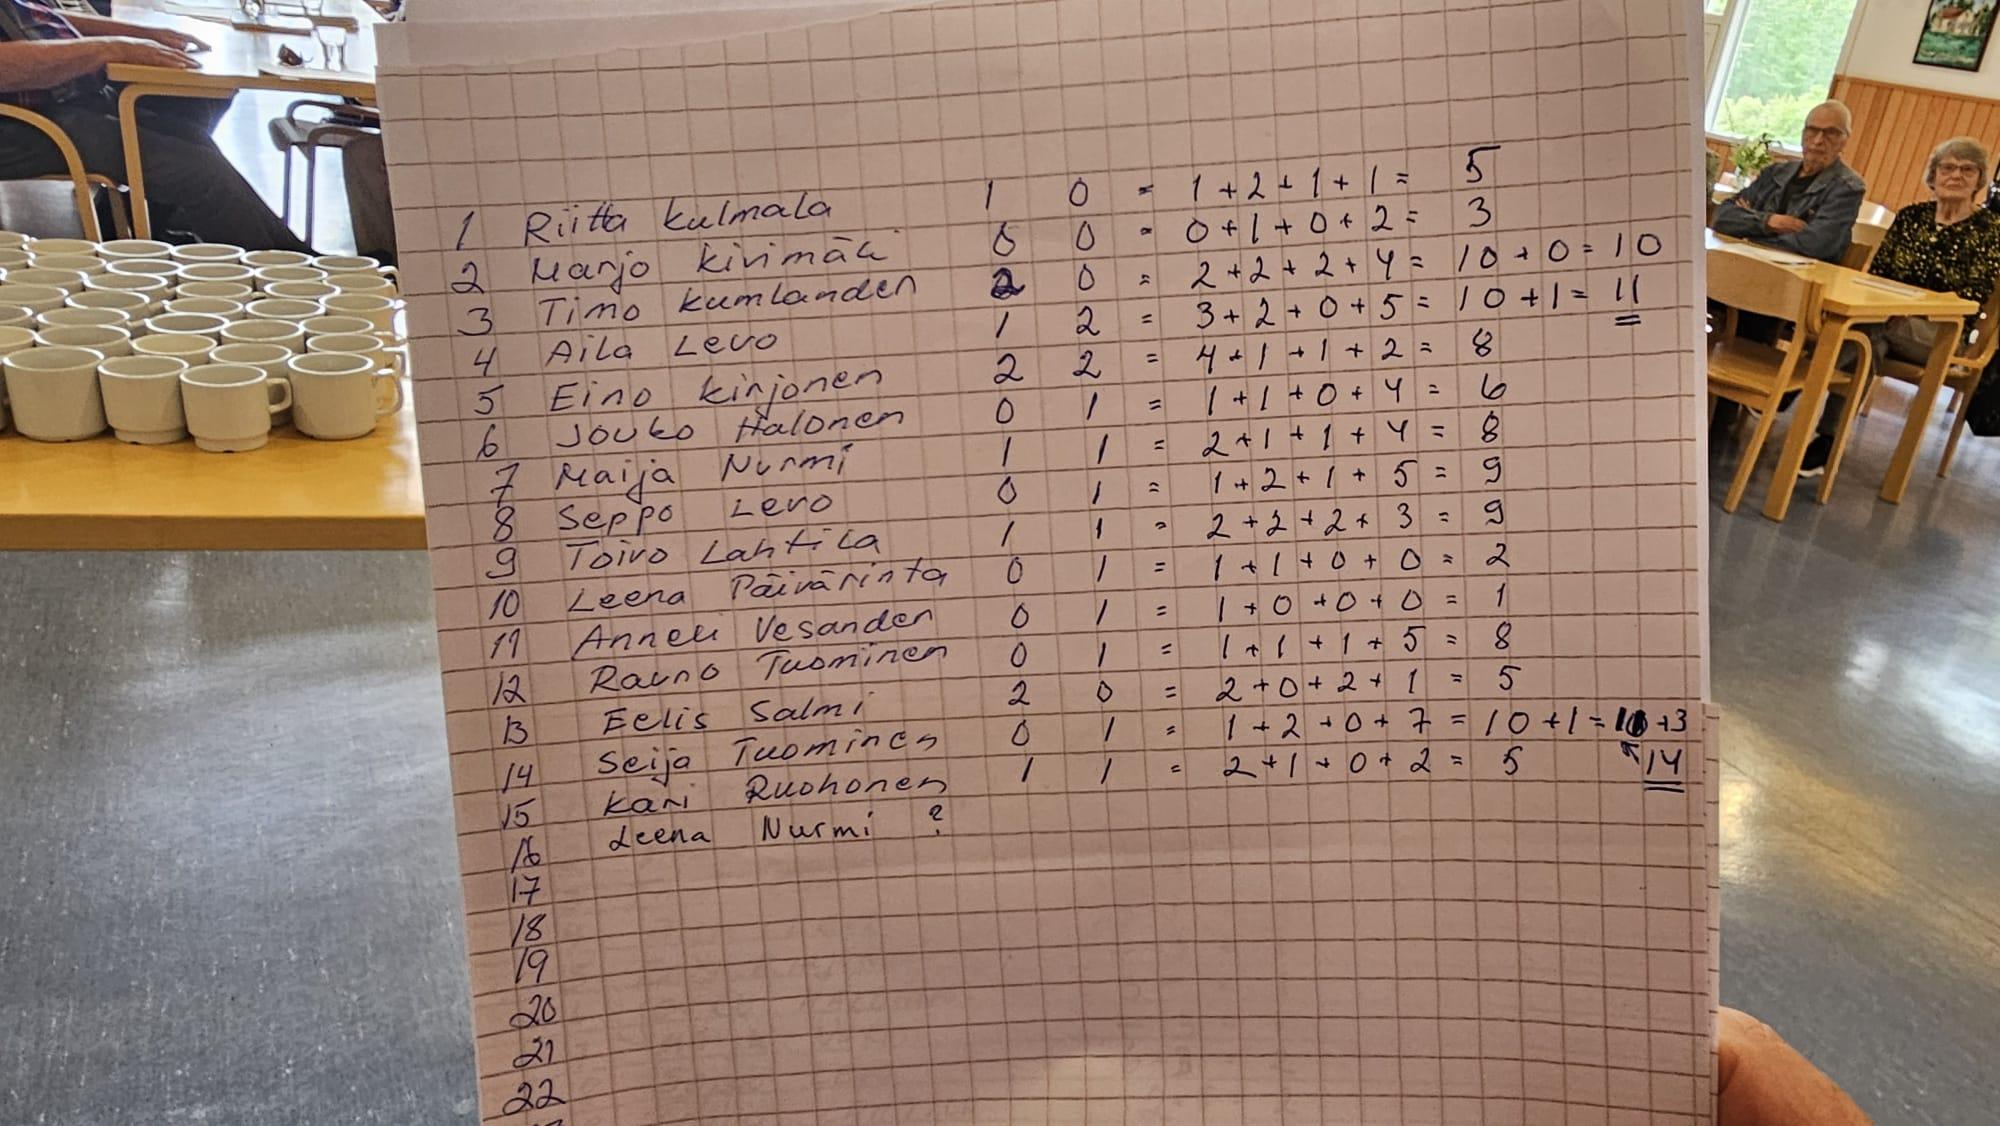 1 Riitta Kulmala 1 0 = 1+2+1+1= 5
2 Marjo Kivimäki 0 0 = 0+1+0+2= 3
3 Timo Kumlanden 2 0 = 2+2+2+4= 10+0=10
4 Aila Levo 1 2 = 3+2+0+5= 10+1= 11
5 Eino Kirjonen 2 2 = 4+1+1+2= 8
6 Jouko Halonen 0 1 = 1+1+0+4= 6
7 Maija Nurmi 1 1 = 2+1+1+4= 8
8 Seppo Levo 0 1 = 1+2+1+5= 9
9 Toivo Lahtila 1 1 = 2+2+2+3= 9
10 Leena Päivärinta 0 1 = 1+1+0+0= 2
11 Anneli Vesanden 0 1 = 1+0+0+0= 1
12 Rauno Tuominen 0 1 = 1+1+1+5= 8
13 Eelis Salmi 2 0 = 2+0+2+1= 5
14 Seija Tuominen 0 1 = 1+2+0+7= 10+1=11+3
15 Kari Ruohonen 1 1 = 2+1+0+2= 5 14
16 Leena Nurmi ?
17
18
19
20
21
22